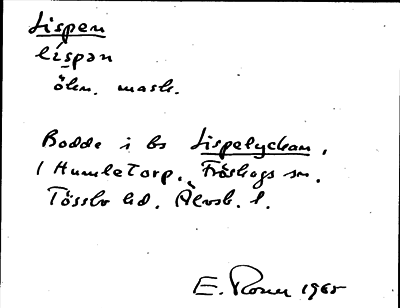 Lispen
líspən
ökn. mask.
Bodde i bs Lispelyckan,
/ Humletorp, Fröskogs sn.
Tössbo hd. Älvsb. l.
E. Rosen 1965